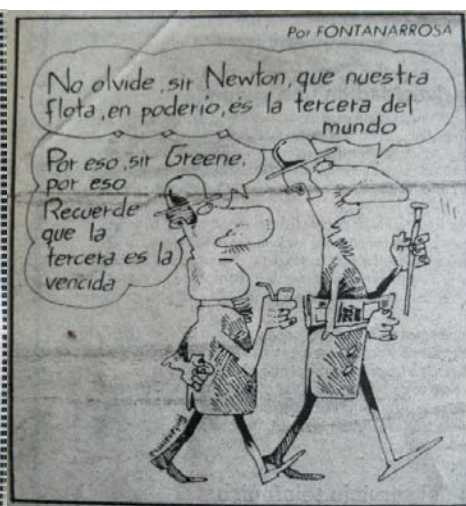 Por FONTANARROSA
No olvide, sir Newton, que nuestra
flota, en poderío, es la tercera del
mundo
Por eso, sir Greene,
por eso
Recuerde
que la
tercera es la
vencida